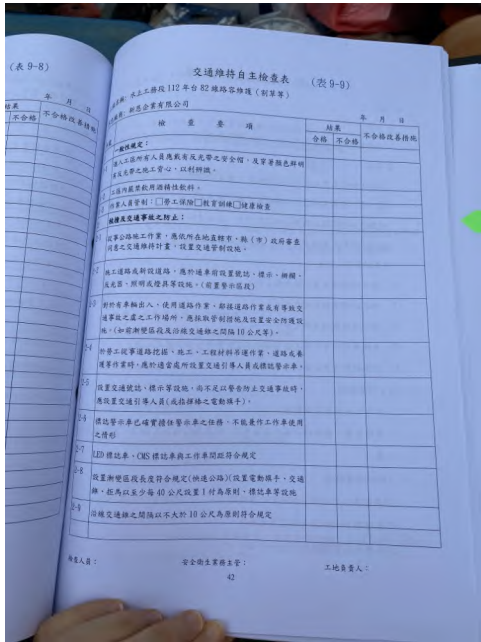 (表 9-8)
年 月 日
結果
不合格
不合格改善措施
交通維持自主檢查表 (表 9-9)
水上工務段 112 年台 82 線路容維護(割草等)
企業有限公司
年 月 日
檢 查 要 項
結果
合格
不合格
不合格改善措施
一般性規定:
進入工區所有人員應戴有反光帶之安全帽,及穿著顏色鮮明
有反光帶之施工背心,以利辨識。
工區內嚴禁飲用酒精性飲料。
作業人員管制:□勞工保險□教育訓練□健康檢查
被撞及交通事故之防止:
2-1
從事公路施工作業,應依所在地直轄市、縣(市)政府審查
同意之交通維持計畫,設置交通管制設施。
2-2
施工道路或新設道路,應於通車前設置號誌、標示、柵欄、
反光器、照明或燈具等設施。(前置警示區段)
2-3
對於有車輛出入、使用道路作業、鄰接道路作業或有導致交
通事故之虞之工作場所,應採取管制措施及設置安全防護設
施。(如前漸變區段及沿線交通錐之間隔 10 公尺等)。
2-4
於勞工從事道路挖掘、施工、工程材料吊運作業、道路或養
護等作業時,應於適當處所設置交通引導人員或標誌警示車。
2-5
設置交通號誌、標示等設施,尚不足以警告防止交通事故時,
應設置交通引導人員(或指揮棒之電動旗手)。
2-6
標誌警示車已確實擔任警示車之任務,不能兼作工作車使用
之情形
2-7
LED 標誌車、CMS 標誌車與工作車間距符合規定
2-8
設置漸變區段長度符合規定(快速公路)(設置電動旗手、交通
錐、拒馬以至少每 40 公尺設置 1 付為原則、標誌車等設施
2-9
沿線交通錐之間隔以不大於 10 公尺為原則符合規定
檢查人員: 安全衛生業務主管: 工地負責人:
42